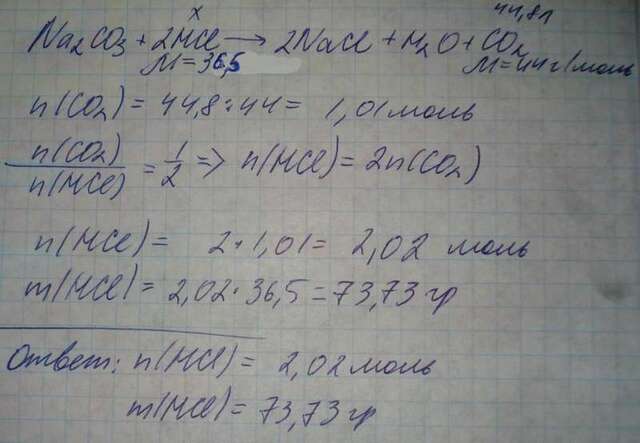 x 44,8л
Na2CO3 + 2HCl → 2NaCl + H2O + CO2
M = 36,5 M = 44 г/моль
n(CO2) = 44,8 : 44 = 1,01 моль
n(CO2)/n(HCl) = 1/2 => n(HCl) = 2n(CO2)
n(HCl) = 2 · 1,01 = 2,02 моль
m(HCl) = 2,02 · 36,5 = 73,73 гр
Ответ: n(HCl) = 2,02 моль
m(HCl) = 73,73 гр